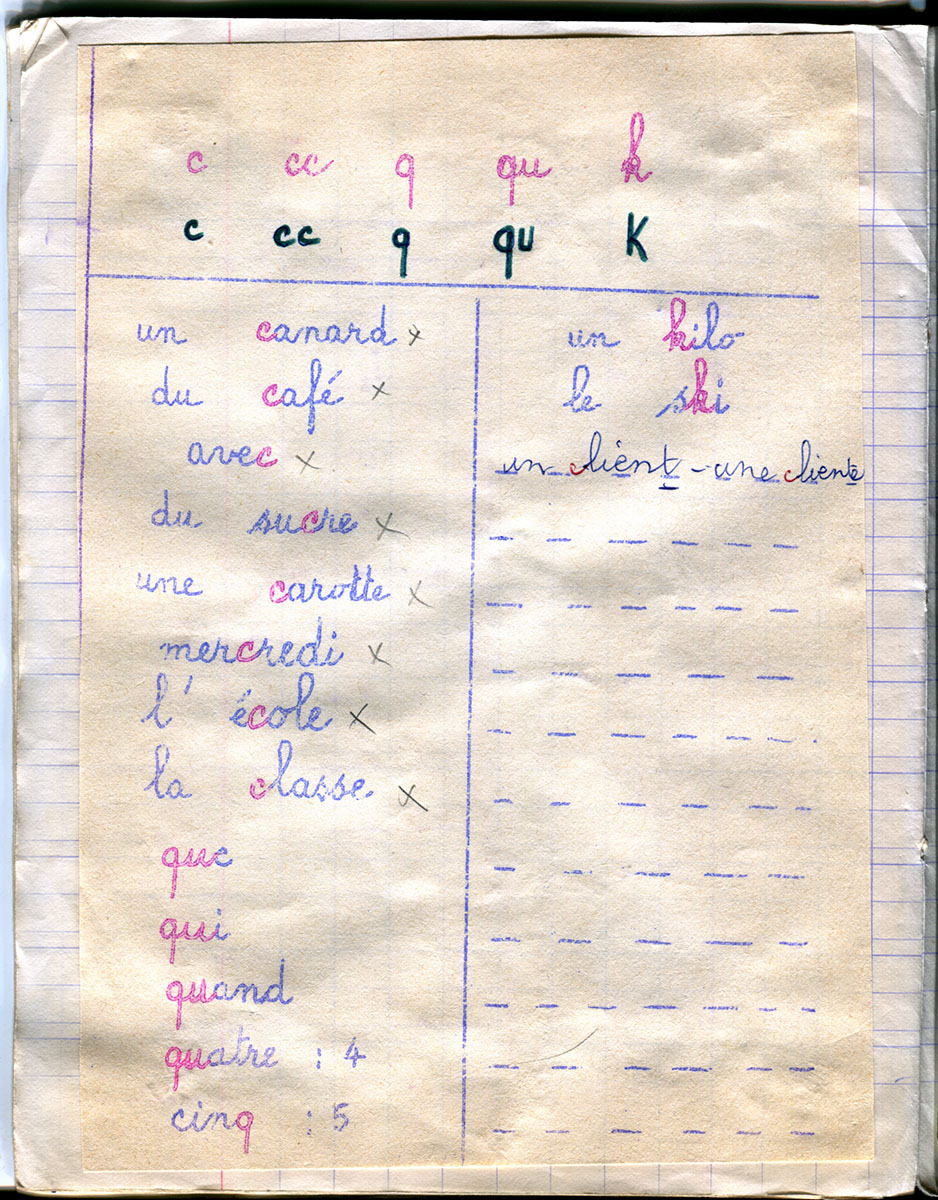 c cc q qu k
c cc q qu K
un canard x
du café x
avec x
du sucre x
une carotte x
mercredi x
l' école x
la classe x
que
qui
quand
quatre : 4
cinq : 5
un kilo
le ski
un client - une cliente